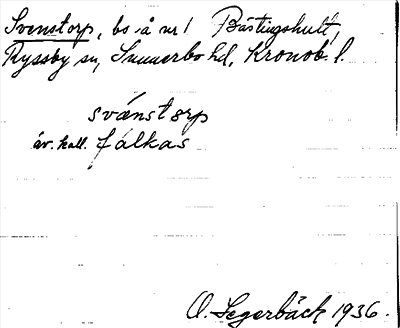 Svenstorp, bs å nr 1 Bästingshult,
Ryssby sn, Sunnerbo hd, Kronob. l.
svánstorp
äv. kall. fálkas
O. Segerbäck 1936.